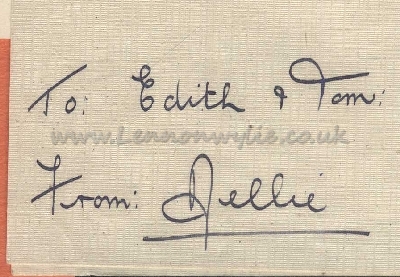 To: Edith & Tom:
www.Lennonwylie.co.uk
From: Nellie